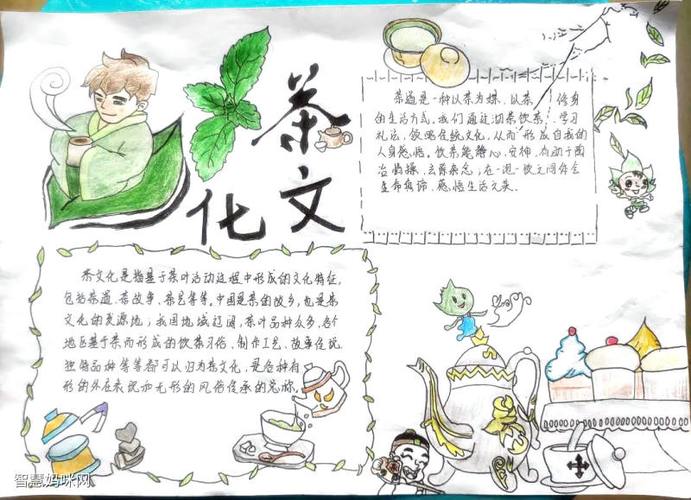 茶文
化
茶道是一种以茶为媒,以茶修身
的生活方式。我们通过沏茶饮茶,学习
礼法,领略传统文化,从而形成自我的
人身感悟。饮茶能静心、安神,有助于陶
冶情操、去除杂念;在一泡一饮之间体会
生命真谛,感悟生活之美。
茶文化是指基于茶叶活动过程中形成的文化特征,
包括茶道、茶故事、茶艺等等。中国是茶的故乡,也是茶
文化的发源地;我国地域辽阔,茶叶品种众多,各个
地区基于茶而形成的饮茶习俗、制作工艺、故事传说、
独特品种等等都可以归为茶文化,是各种有
形的外在表现和无形的风俗传承的总称。
智慧妈咪网